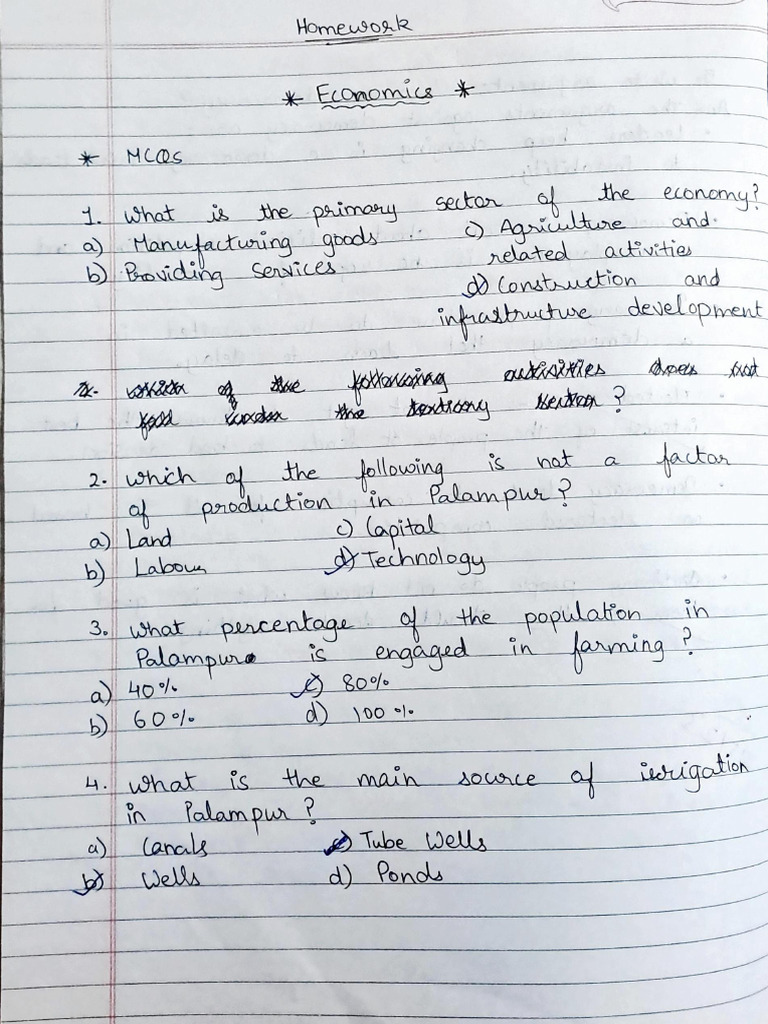 Homework
* Economics *
* MCQS
1. What is the primary sector of the economy?
a) Manufacturing goods c) Agriculture and
related activities
b) Providing Services
d) Construction and
infrastructure development
2. which of the following activities does not
fall under the tertiary sector?
2. which of the following is not a factor
of production in Palampur?
a) Land c) Capital
b) Labour d) Technology
3. what percentage of the population in
Palampur is engaged in farming?
a) 40% c) 80%
b) 60% d) 100%
4. what is the main source of irrigation
in Palampur?
a) Canals c) Tube Wells
b) Wells d) Ponds